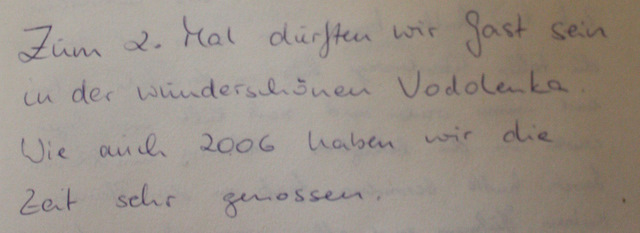 Zum 2. Mal dürften wir Gast sein
in der wunderschönen Vodolenka.
Wie auch 2006 haben wir die
Zeit sehr genossen.